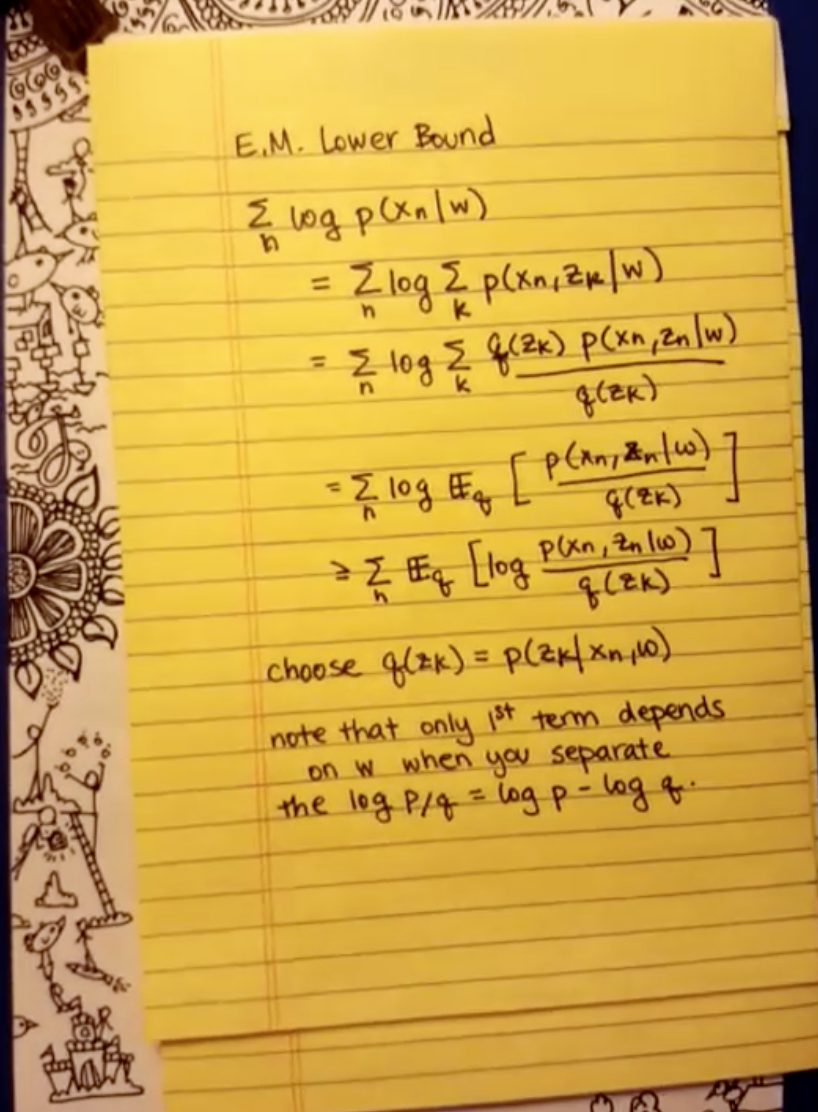 E.M. Lower Bound
Σ_n log p(xn|w)
= Σ_n log Σ_k p(xn, zk|w)
= Σ_n log Σ_k q(zk) p(xn, zn|w) / q(zk)
= Σ_n log 𝔼_q [ p(xn, zn|w) / q(zk) ]
≥ Σ_n 𝔼_q [ log p(xn, zn|w) / q(zk) ]
choose q(zk) = p(zk|xn, w)
note that only 1st term depends
on w when you separate
the log p/q = log p - log q.